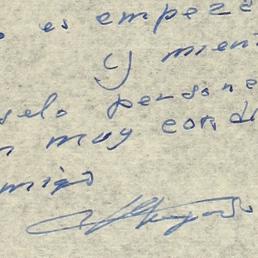 o es empeza
y mient
selo persone
n muy cordi
migo